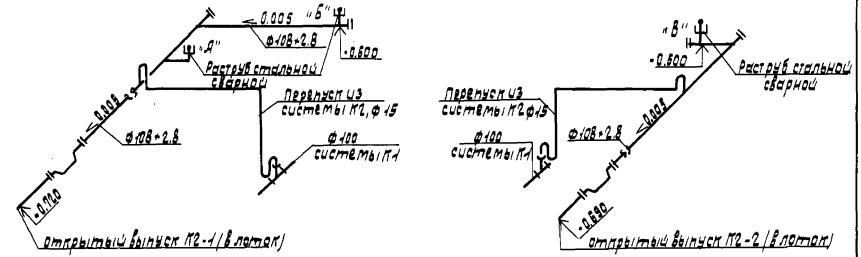 0.005
"Б"
ф108*2.8
-0.600
"А"
Раструб стальной
сварной
0.005
ф108*2.8
Перепуск из
системы К2, ф15
ф100
системы К1
-0.720
открытый выпуск К2-1 /в лоток/
"В"
-0.600
Раструб стальной
сварной
Перепуск из
системы К2 ф15
0.005
ф108*2.8
ф100
системы К1
-0.690
открытый выпуск К2-2 /в лоток/